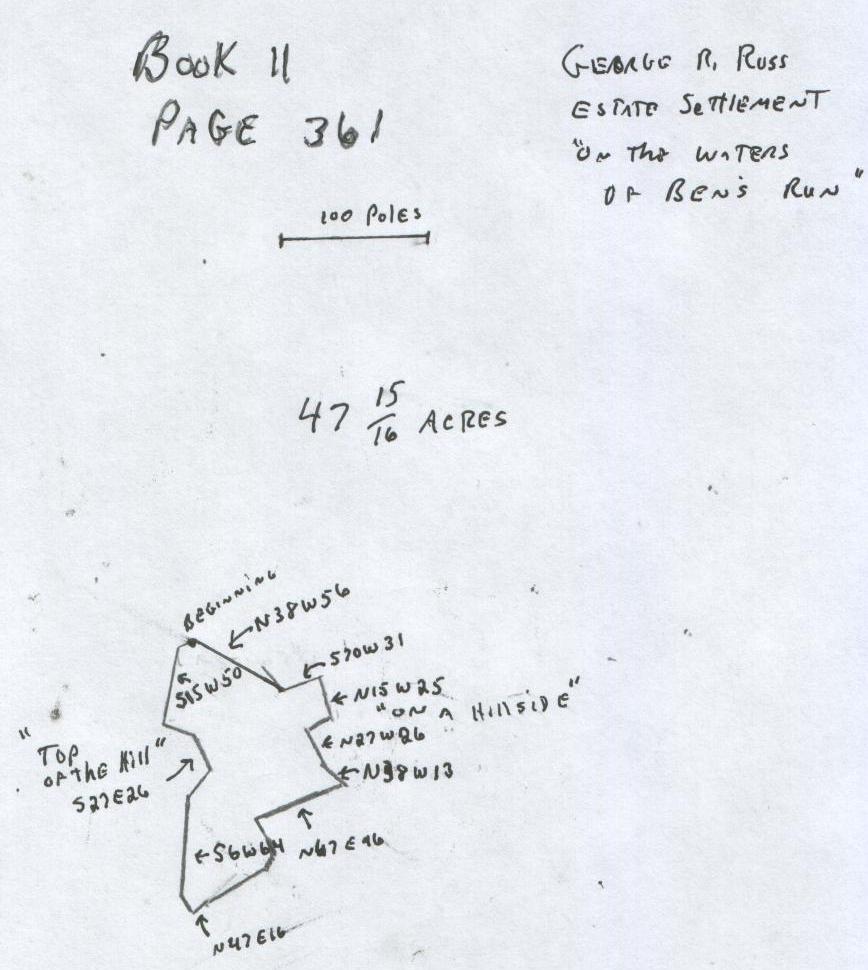 BOOK 11
PAGE 361
GEORGE R. RUSS
ESTATE SETTLEMENT
"ON THE WATERS
OF BEN'S RUN"
100 POLES
47 15/16 ACRES
BEGINNING
N38W56
S70W31
S15W50
N15W25
"ON A HILLSIDE"
N27W26
"TOP
OF THE HILL"
S27E26
N38W13
S6W64
N67E46
N47E16